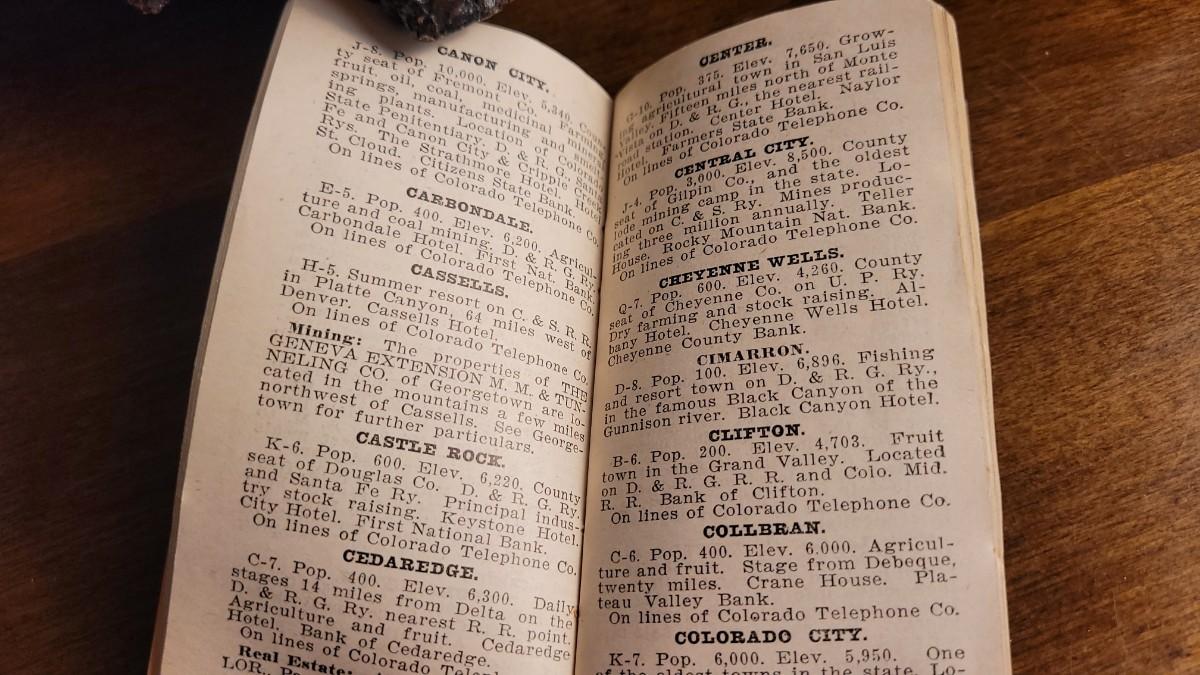 CANON CITY.
J-8. Pop. 10,000. Elev. 5,340. Coun-
ty seat of Fremont Co. Farming,
fruit, oil, coal, medicinal mineral
springs, manufacturing and smelt-
ing plants. Location of Colorado
State Penitentiary. D. & R. G., Santa
Fe and Canon City & Cripple Creek
Rys. The Strathmore Hotel, Hotel
St. Cloud. Citizens State Bank.
On lines of Colorado Telephone Co.
CARBONDALE.
E-5. Pop. 400. Elev. 6,200. Agricul-
ture and coal mining. D. & R. G. Ry.
Carbondale Hotel. First Nat. Bank.
On lines of Colorado Telephone Co.
CASSELLS.
H-5. Summer resort on C. & S. R. R.
in Platte Canyon, 64 miles west of
Denver. Cassells Hotel.
On lines of Colorado Telephone Co.
Mining: The properties of THE
GENEVA EXTENSION M. M. & TUN-
NELING CO. of Georgetown are lo-
cated in the mountains a few miles
northwest of Cassells. See George-
town for further particulars.
CASTLE ROCK.
K-6. Pop. 600. Elev. 6,220. County
seat of Douglas Co. D. & R. G. Ry.
and Santa Fe Ry. Principal indus-
try stock raising. Keystone Hotel.
City Hotel. First National Bank.
On lines of Colorado Telephone Co.
CEDAREDGE.
C-7. Pop. 400. Elev. 6,300. Daily
stages 14 miles from Delta on the
D. & R. G. Ry. nearest R. R. point.
Agriculture and fruit. Cedaredge
Hotel. Bank of Cedaredge.
On lines of Colorado
Real Estate:
LOR.,
CENTER.
G-10. Pop. 375. Elev. 7,650. Grow-
ing agricultural town in San Luis
Valley. Fifteen miles north of Monte
Vista on D. & R. G., the nearest rail-
road station. Center Hotel. Naylor
Hotel. Farmers State Bank.
On lines of Colorado Telephone Co.
CENTRAL CITY.
J-4. Pop. 3,000. Elev. 8,500. County
seat of Gilpin Co., and the oldest
lode mining camp in the state. Lo-
cated on C. & S. Ry. Mines produc-
ing three million annually. Teller
House. Rocky Mountain Nat. Bank.
On lines of Colorado Telephone Co.
CHEYENNE WELLS.
Q-7. Pop. 600. Elev. 4,260. County
seat of Cheyenne Co. on U. P. Ry.
Dry farming and stock raising. Al-
bany Hotel. Cheyenne Wells Hotel.
Cheyenne County Bank.
CIMARRON.
D-8. Pop. 100. Elev. 6,896. Fishing
and resort town on D. & R. G. Ry.,
in the famous Black Canyon of the
Gunnison river. Black Canyon Hotel.
CLIFTON.
B-6. Pop. 200. Elev. 4,703. Fruit
town in the Grand Valley. Located
on D. & R. G. R. R. and Colo. Mid.
R. R. Bank of Clifton.
On lines of Colorado Telephone Co.
COLLBRAN.
C-6. Pop. 400. Elev. 6,000. Agricul-
ture and fruit. Stage from Debeque,
twenty miles. Crane House. Pla-
teau Valley Bank.
On lines of Colorado Telephone Co.
COLORADO CITY.
K-7. Pop. 6,000. Elev. 5,950. One
of the oldest towns in the state. Lo-